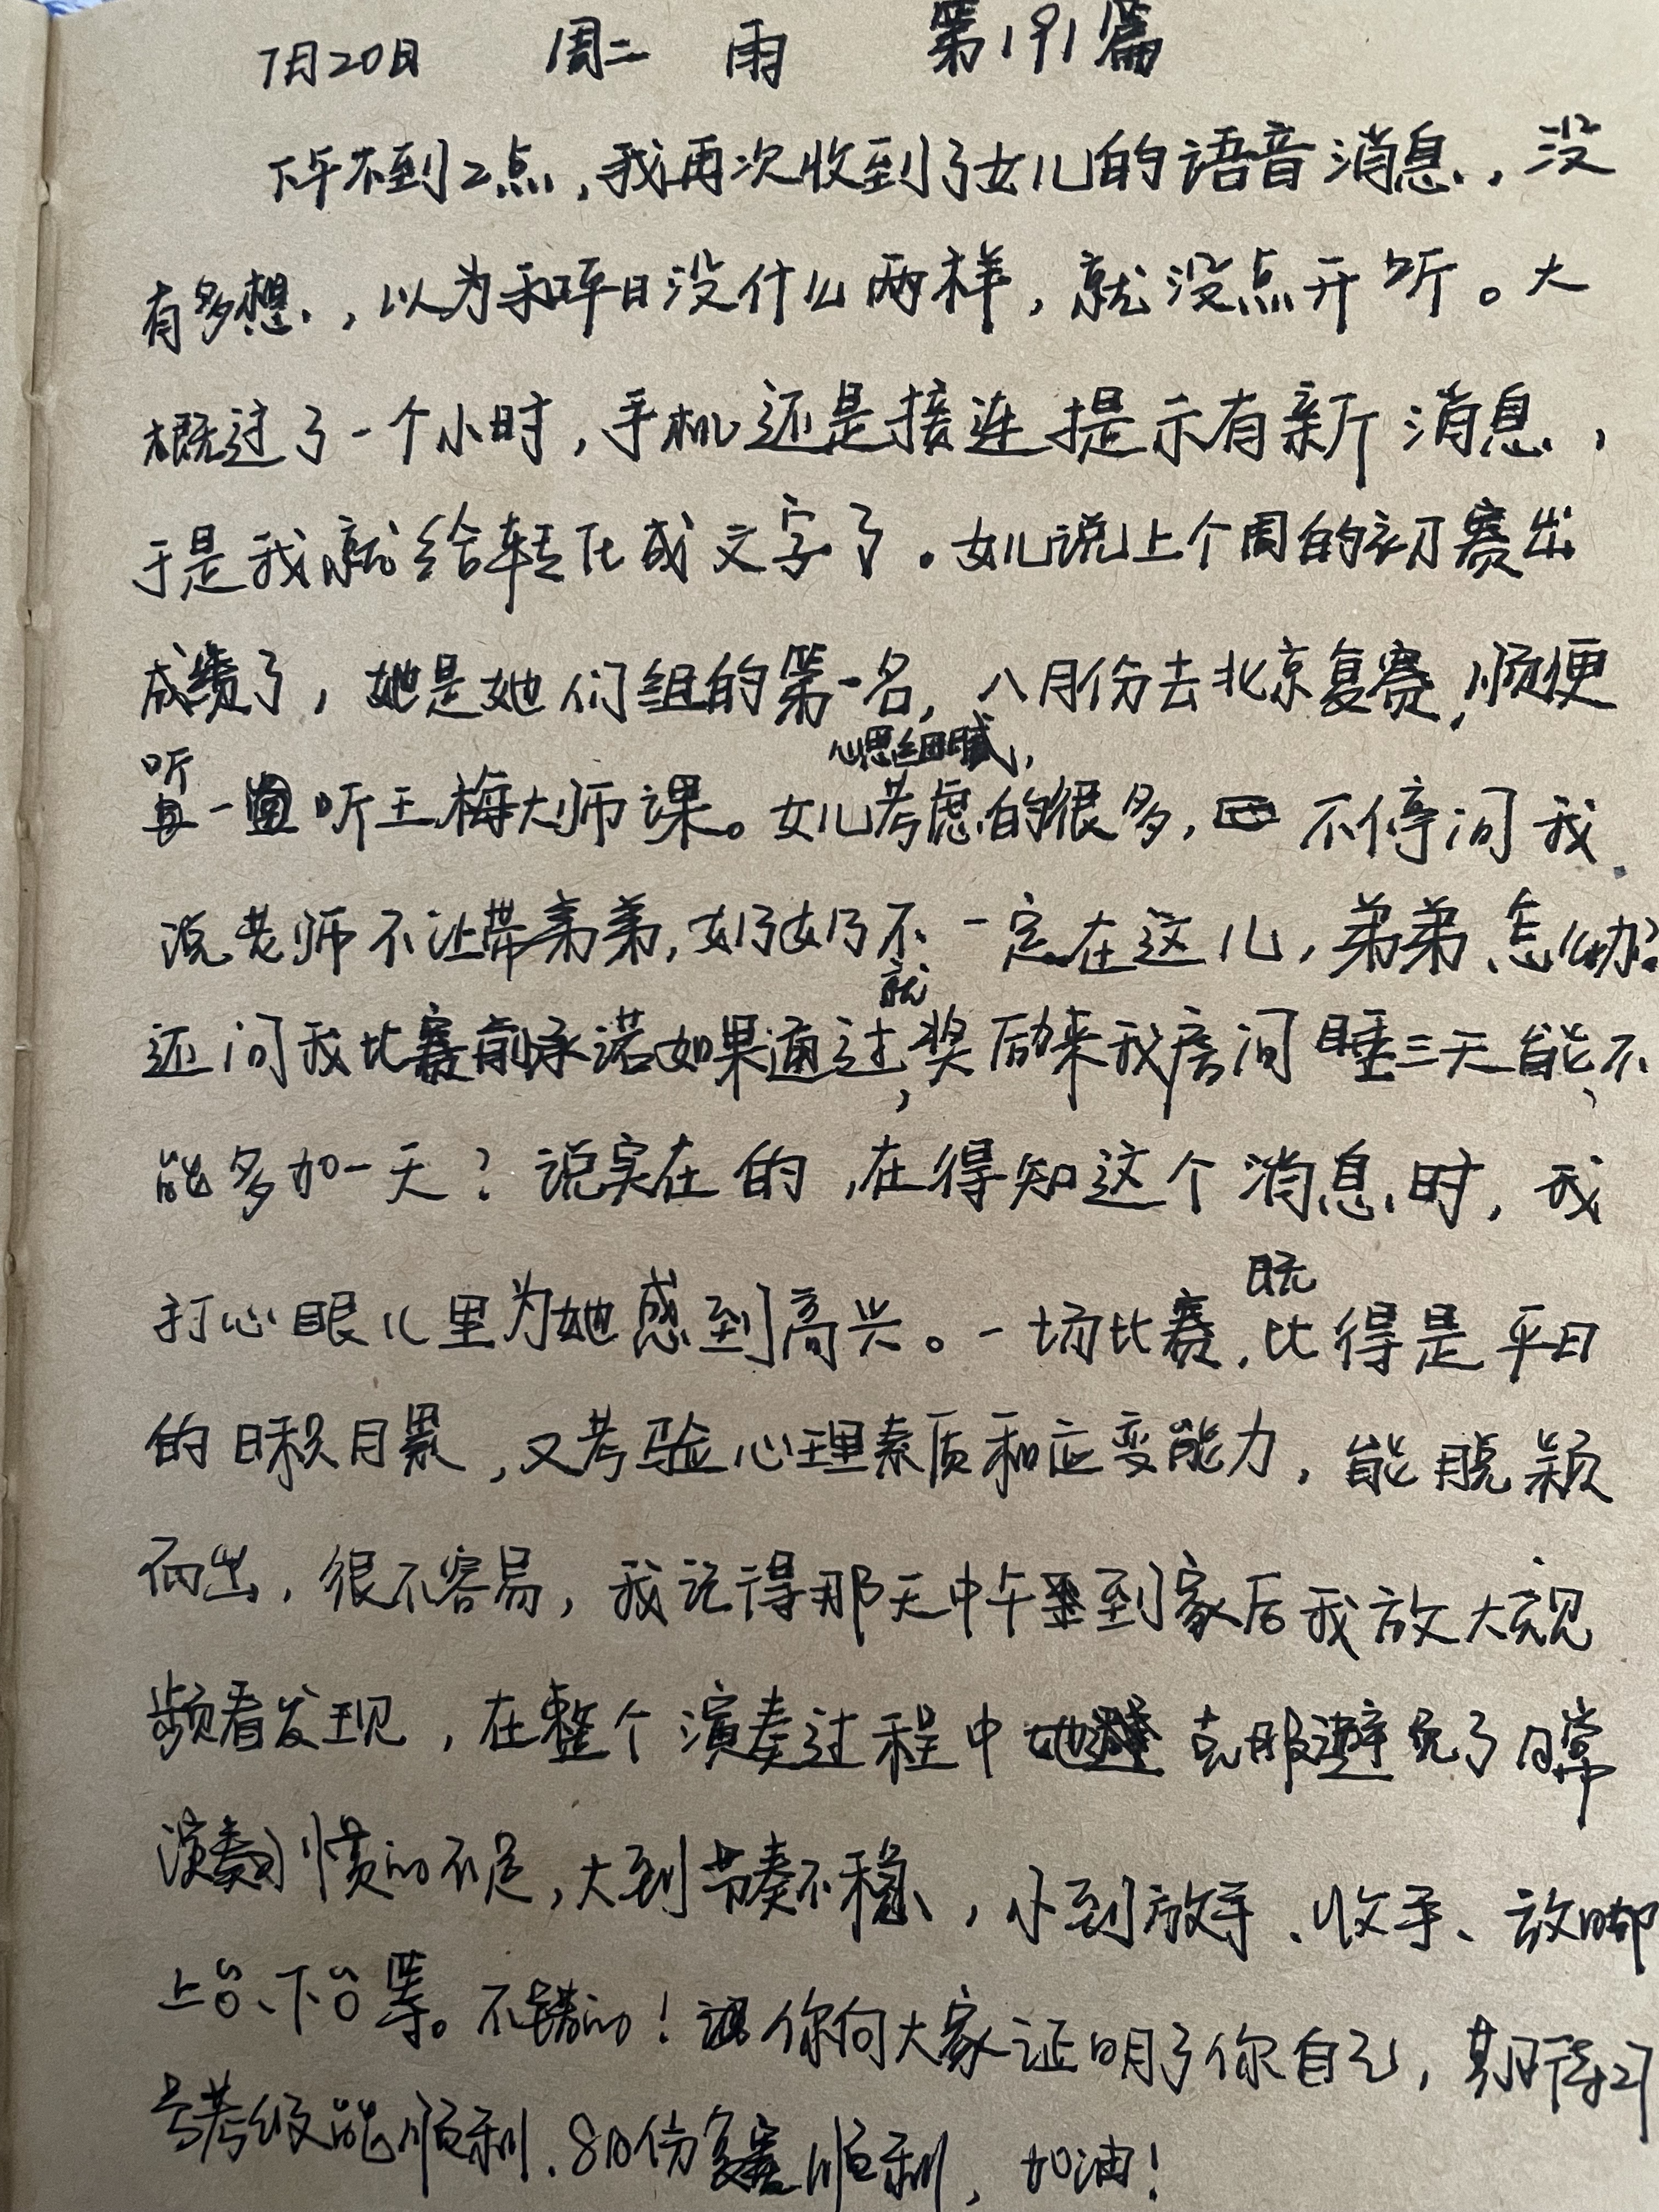 7月20日 周二 雨 第191篇
下午不到2点,我再次收到了女儿的语音消息,没
有多想,以为和平日没什么两样,就没点开听。大
概过了一个小时,手机还是接连提示有新消息,
于是我就给转化成文字了。女儿说上个周的初赛出
成绩了,她是她们组的第一名,八月份去北京复赛,顺便
听
一 听王梅大师课。女儿心思细腻,考虑的很多, 不停问我
说老师不让带弟弟,奶奶不一定在这儿,弟弟怎么办?
还问我比赛前承诺如果通过,就奖励来我房间睡三天,能不
能多加一天?说实在的,在得知这个消息时,我
打心眼儿里为她感到高兴。一场比赛,既比得是平日
的日积月累,又考验心理素质和应变能力,能脱颖
而出,很不容易,我记得那天中午到家后我放大视
频看发现,在整个演奏过程中她 克服避免了日常
演奏习惯的不足,大到节奏不稳,小到放手、收手、放脚
上台、下台等。不错的!你向大家证明了你自己,期待27
号考级能顺利,8月份复赛顺利,加油!